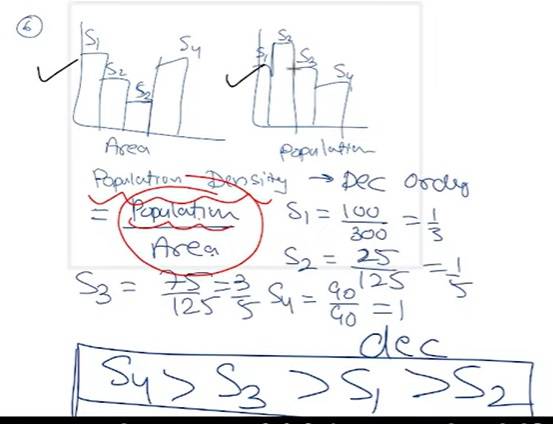 6
S1 S2 S3 S4
S1 S2 S3 S4
Area
Population
Population Density → Dec Order
= Population / Area
S1 = 100/300 = 1/3
S2 = 25/125 = 1/5
S3 = 75/125 = 3/5
S4 = 90/90 = 1
dec
S4 > S3 > S1 > S2